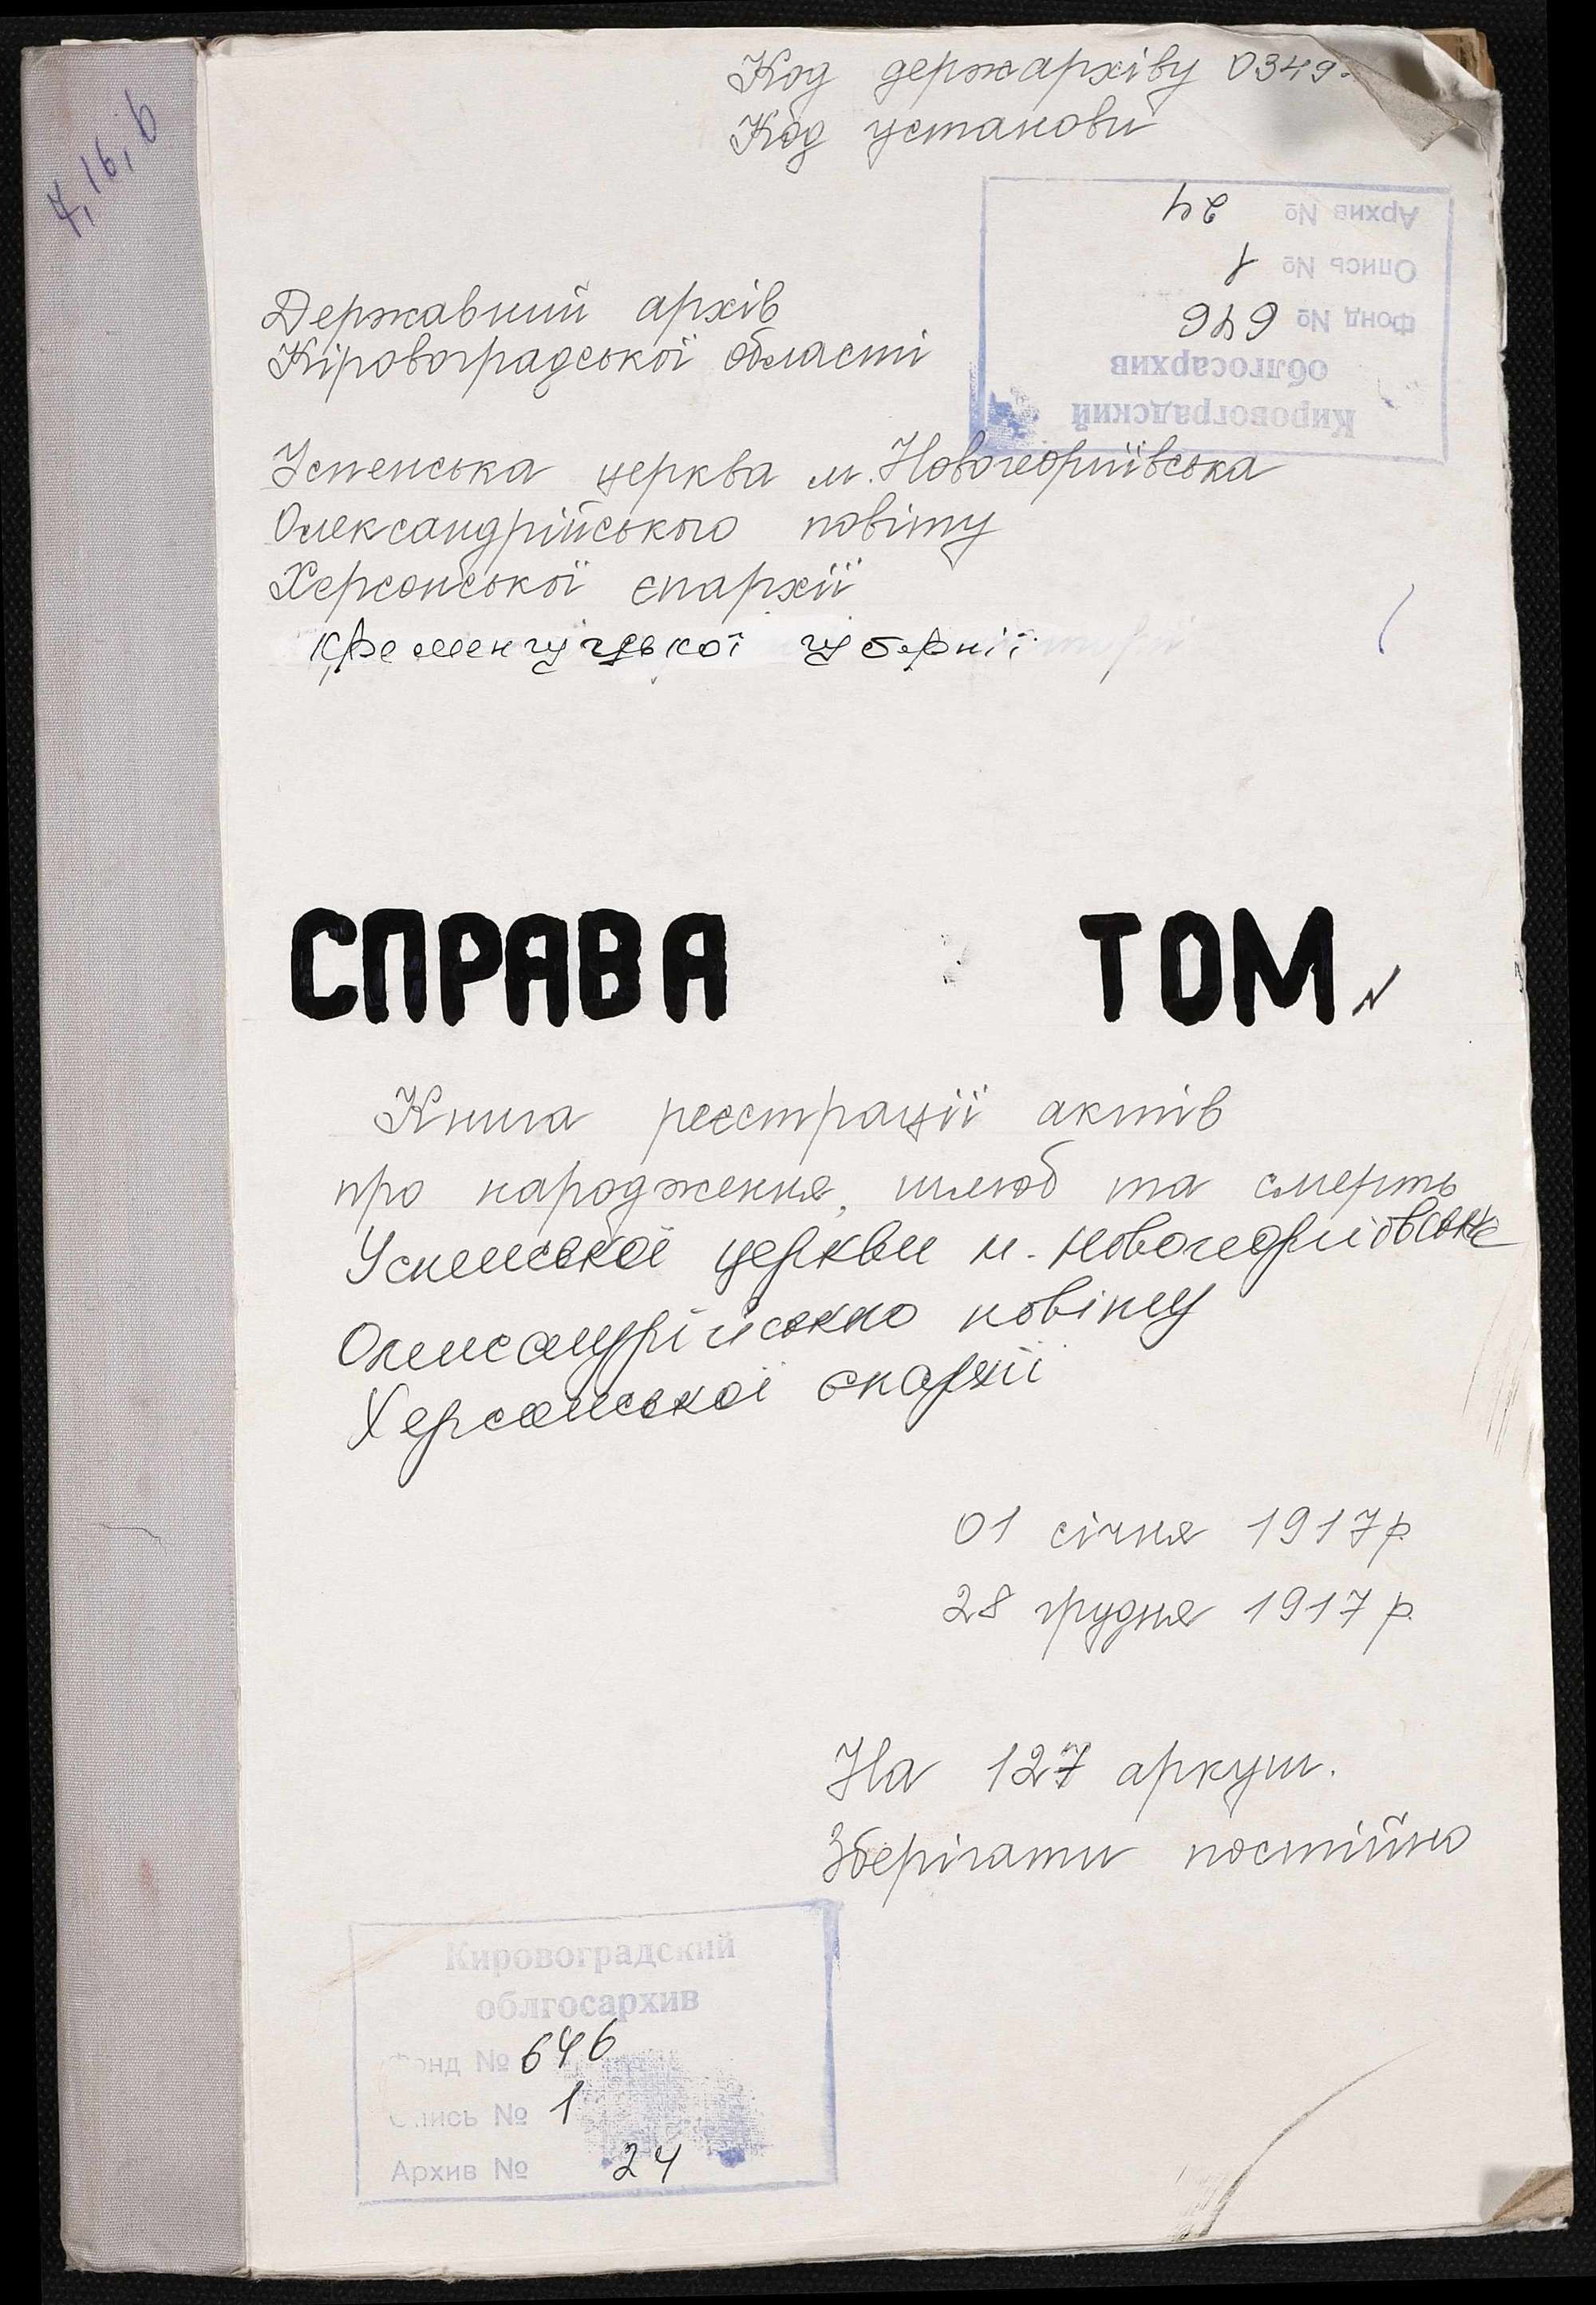 4, 16, 6
Код держархіву 0349.
Код установи
Архив № 24
Опись № 1
Фонд № 646
облгосархив
Кировоградский
Державний архів
Кіровоградської області
Успенська церква м. Новогеоргіївська
Олександрійського повіту
Херсонської єпархії
Кременчугської губернії
СПРАВА ТОМ
Книга реєстрації актів
про народження, шлюб та смерть
Успенської церкви м. Новогеоргіївська
Олександрійського повіту
Херсонської єпархії
01 січня 1917 р
28 грудня 1917 р.
На 127 аркуш.
Зберігати постійно
Кировоградский
облгосархив
Фонд № 646
Опись № 1
Архив № 24